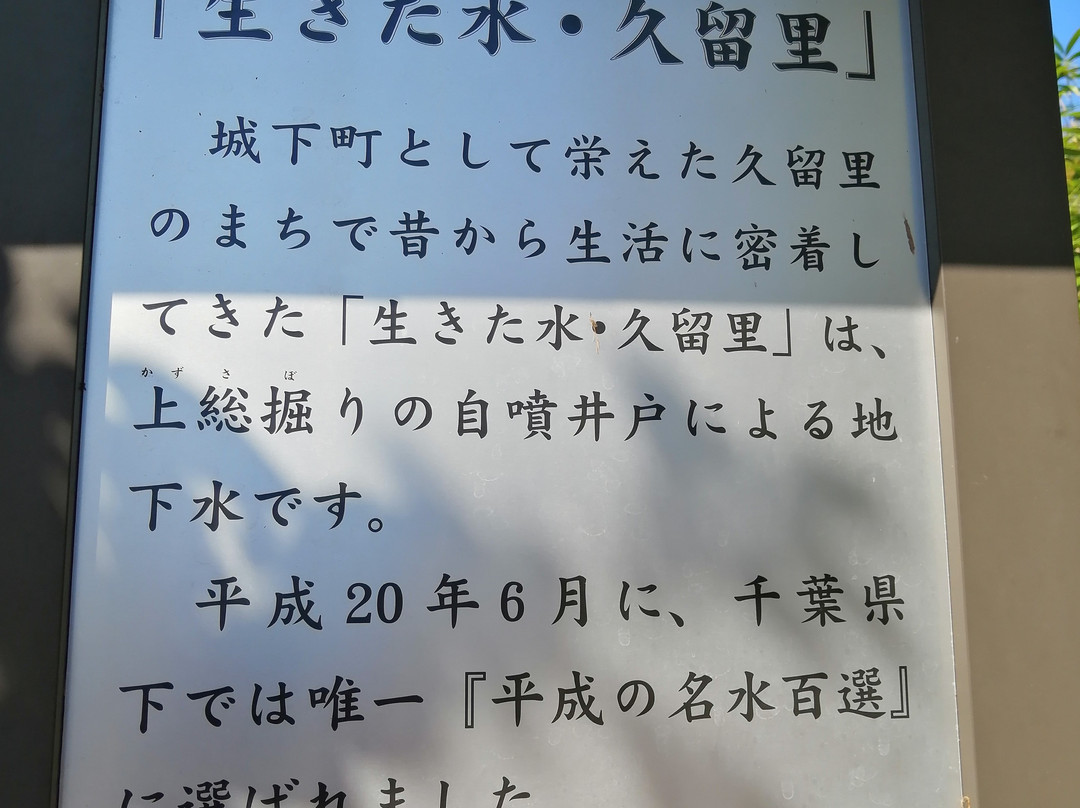 「生きた水・久留里」
城下町として栄えた久留里
のまちで昔から生活に密着し
てきた「生きた水・久留里」は、
かずさぼ
上総掘りの自噴井戸による地
下水です。
平成20年6月に、千葉県
下では唯一『平成の名水百選』
に選ばれました